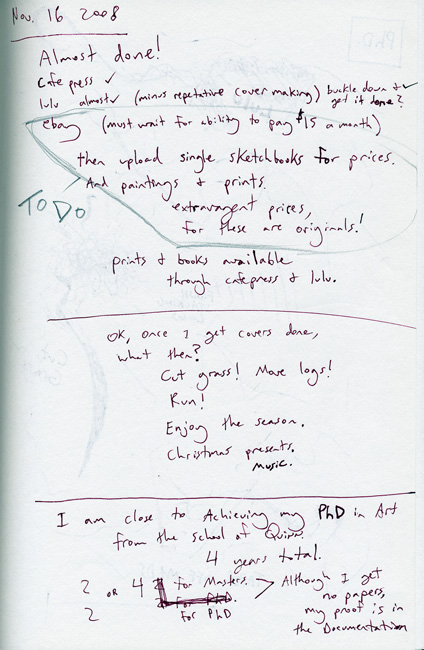 Nov. 16 2008
PhD
Almost done!
Cafe press ✓
lulu almost ✓ (minus repetative cover making) buckle down & ✓
get it done?
ebay (must wait for ability to pay $15 a month)
then upload single sketchbooks for prices.
And paintings & prints.
TO DO
extravagent prices,
for these are originals!
prints & books available
through cafepress & lulu.
OK, once I get covers done,
what then?
Cut grass! Move logs!
Run!
Enjoy the season.
Christmas presents.
music.
I am close to Achieving my PhD in Art
from the school of Quinn.
4 years total.
2 OR 4 for Masters. > Although I get
for PhD no papers,
2 for PhD my proof is in
the Documentation